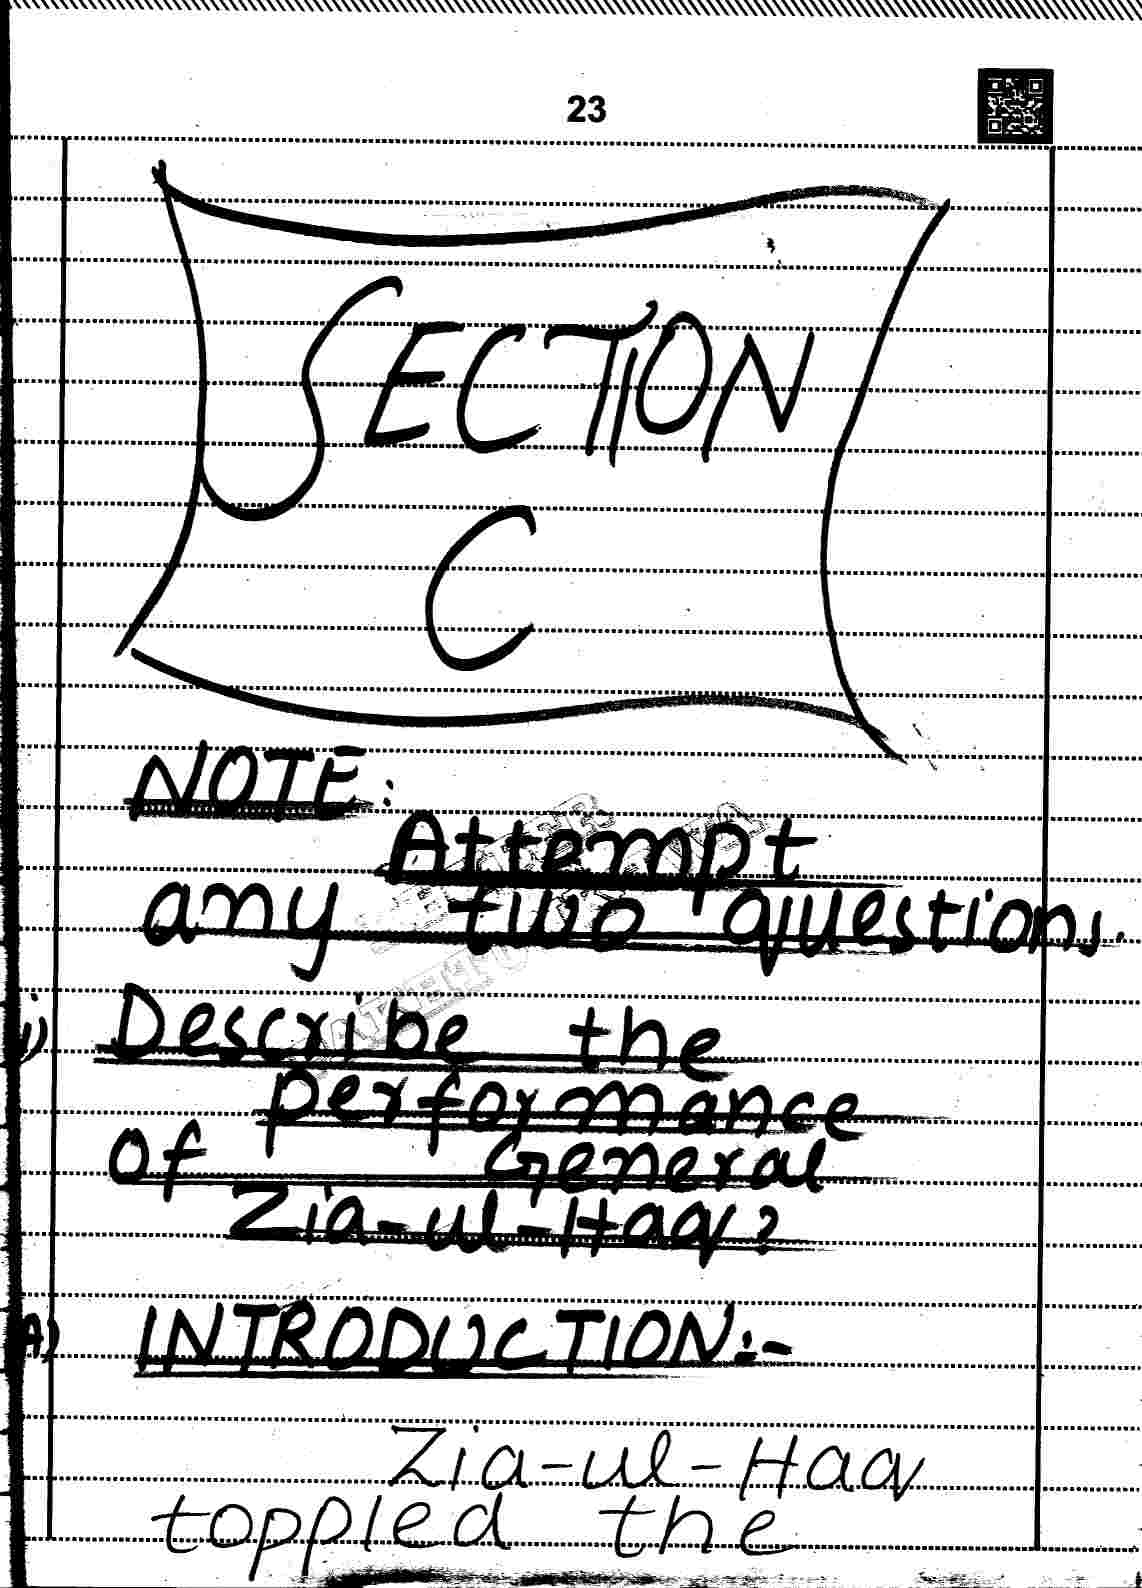 23
SECTION
C
NOTE:
Attempt
any two questions.
i) Describe the
performance
of General
Zia-ul-Haq?
A) INTRODUCTION:-
Zia-ul-Haq
toppled the